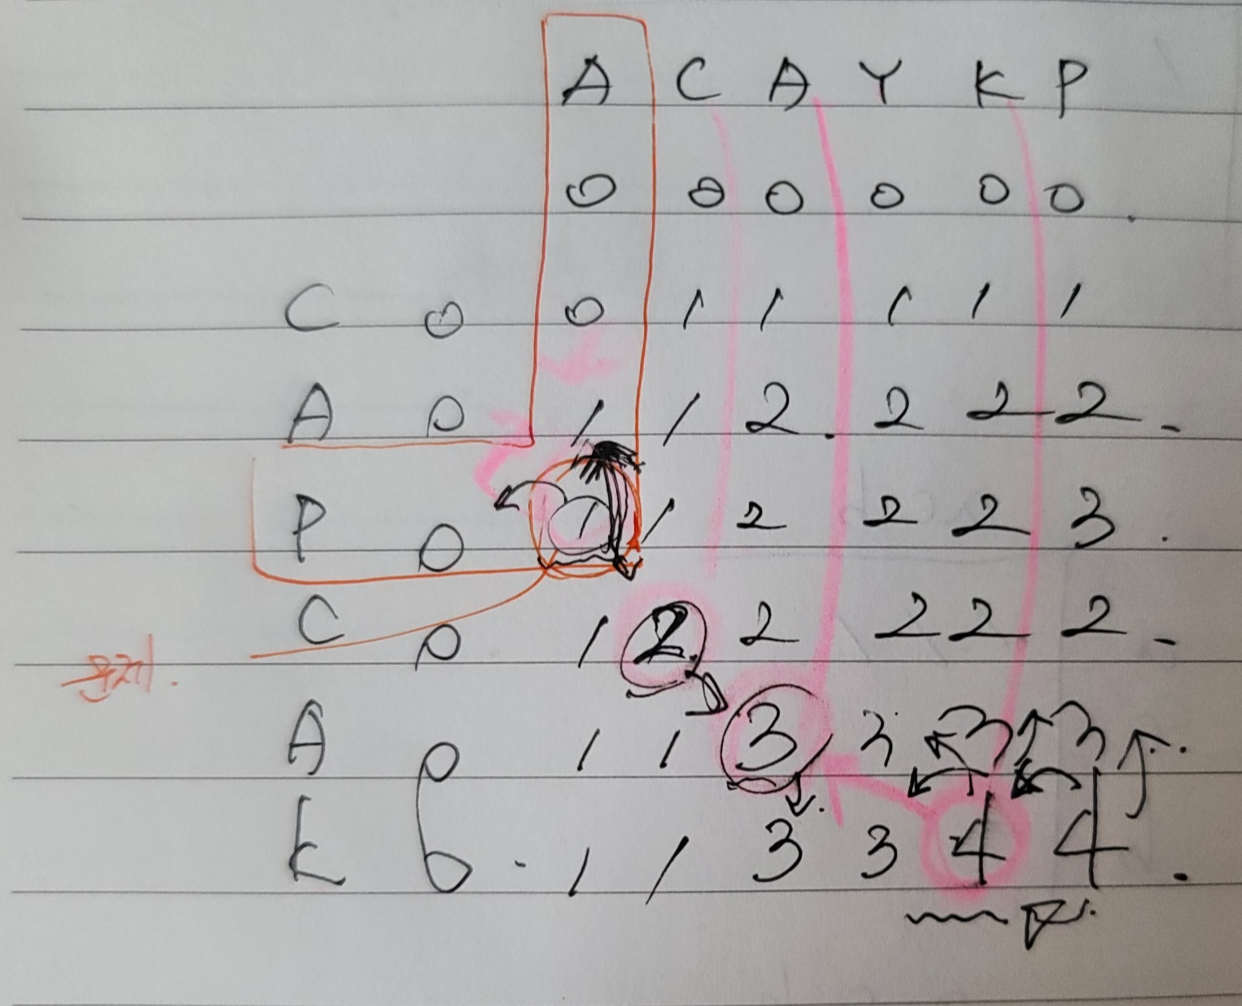 A C A Y K P
0 0 0 0 0 0 .
C 0 0 1 1 1 1 1
A 0 1 1 2 . 2 2 2 .
P 0 1 1 2 2 2 3 .
C 0 1 2 2 2 2 2 .
A 0 1 1 3 3 3 3
K 0 . 1 1 3 3 4 4 .